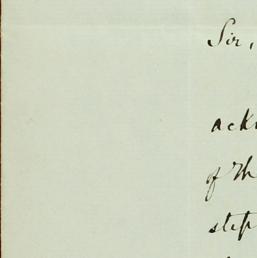 Sir,
ack
of th
step